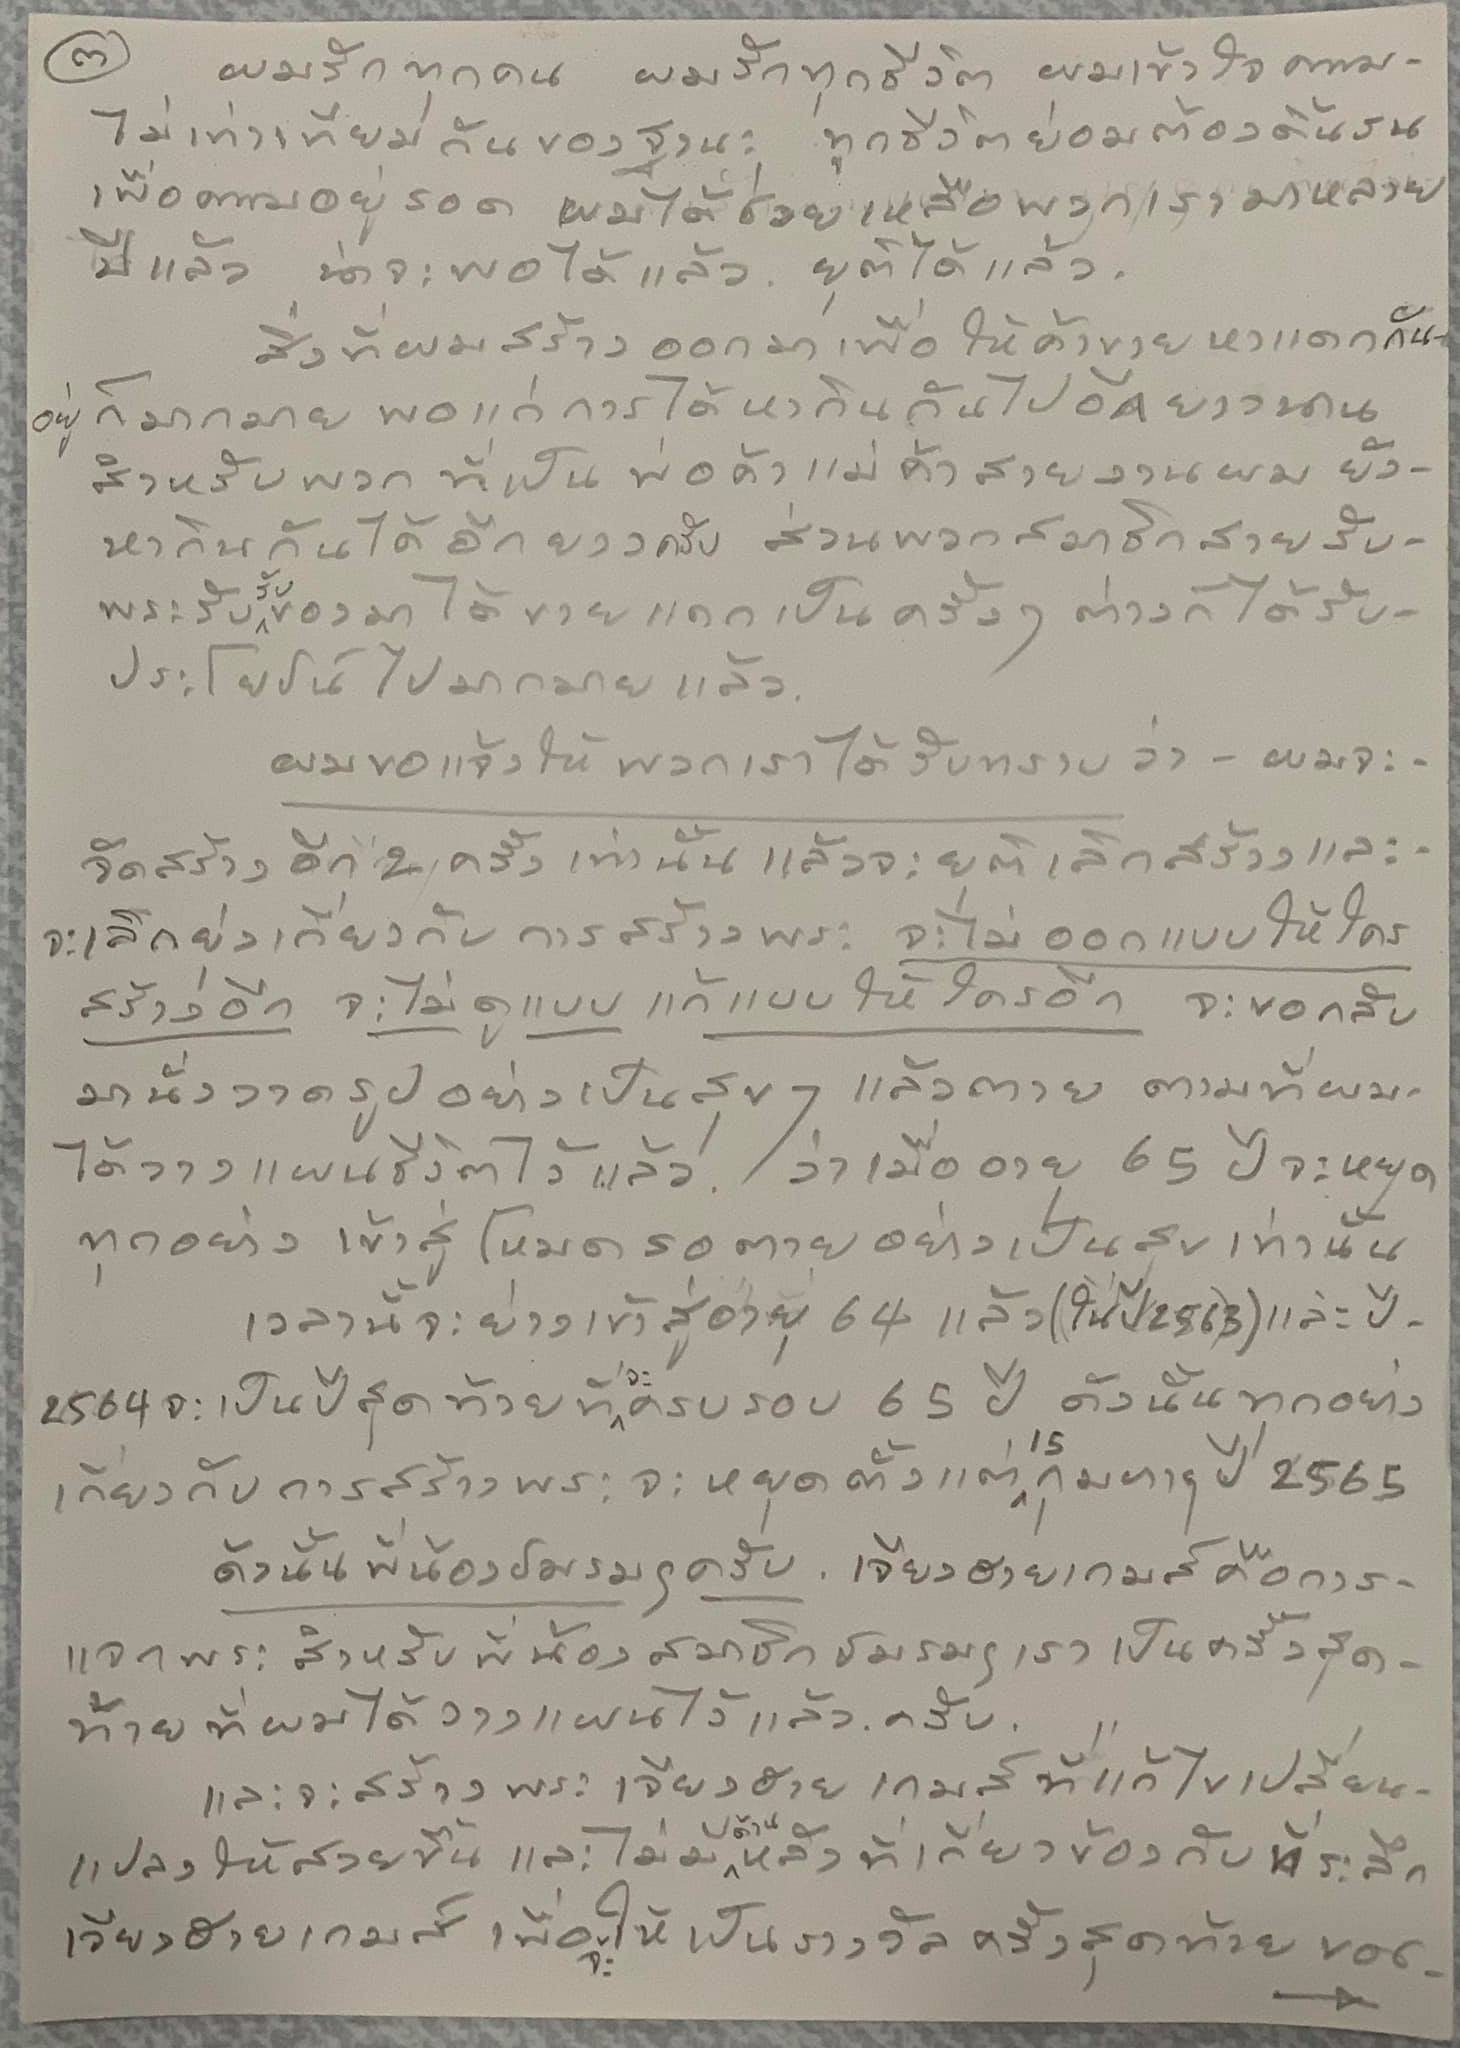 ๓
ผมรักทุกคน ผมรักทุกชีวิต ผมเข้าใจความ-
ไม่เท่าเทียมกันของฐานะ ทุกชีวิตย่อมต้องดิ้นรน
เพื่อความอยู่รอด ผมได้ช่วยเหลือพวกเรามาหลาย
ปีแล้ว น่าจะพอได้แล้ว. ยุติได้แล้ว.
สิ่งที่ผมสร้างออกมาเพื่อให้ค้าขายหาแดกกัน-
อยู่ก็มากมาย พอแก่การได้หากินกันไปอีกยาวนาน
สำหรับพวกที่เป็นพ่อค้าแม่ค้าสายงานผม ยัง-
หากินกันได้อีกยาวครับ ส่วนพวกสมาชิกสายรับ-
พระรับรับของมาได้ขายแดกเป็นครั้งๆ ต่างก็ได้รับ-
ประโยชน์ไปมากมายแล้ว.
ผมขอแจ้งให้พวกเราได้รับทราบว่า - ผมจะ-
จัดสร้างอีก 2 ครั้งเท่านั้น แล้วจะยุติเลิกสร้างและ-
จะเลิกยุ่งเกี่ยวกับการสร้างพระ จะไม่ออกแบบให้ใคร
สร้างอีก จะไม่ดูแบบ แก้แบบให้ใครอีก จะขอกลับ
มานั่งวาดรูปอย่างเป็นสุขๆ แล้วตาย ตามที่ผม-
ได้วางแผนชีวิตไว้แล้ว. ว่าเมื่ออายุ 65 ปีจะหยุด
ทุกอย่าง เข้าสู่โหมดรอตายอย่างเป็นสุขเท่านั้น
เวลานี้จะย่างเข้าสู่อายุ 64 แล้ว (ในปี 2563) และปี-
2564 จะเป็นปีสุดท้ายที่จะครบรอบ 65 ปี ดังนั้นทุกอย่าง
เกี่ยวกับการสร้างพระ จะหยุดตั้งแต่ 15 กุมภาฯ ปี 2565
ดังนั้นพี่น้องชมรมฯครับ. เจียงฮายเกมส์คือการ-
แจกพระ สำหรับพี่น้องสมาชิกชมรมฯเราเป็นครั้งสุด-
ท้ายที่ผมได้วางแผนไว้แล้ว.ครับ.
และจะสร้างพระ เจียงฮายเกมส์ ที่แก้ไขเปลี่ยน-
แปลงให้สวยขึ้น และไม่มีด้านหลังที่เกี่ยวข้องกับที่ระลึก
เจียงฮายเกมส์ เพื่อจะให้เป็นรางวัลครั้งสุดท้ายของ-